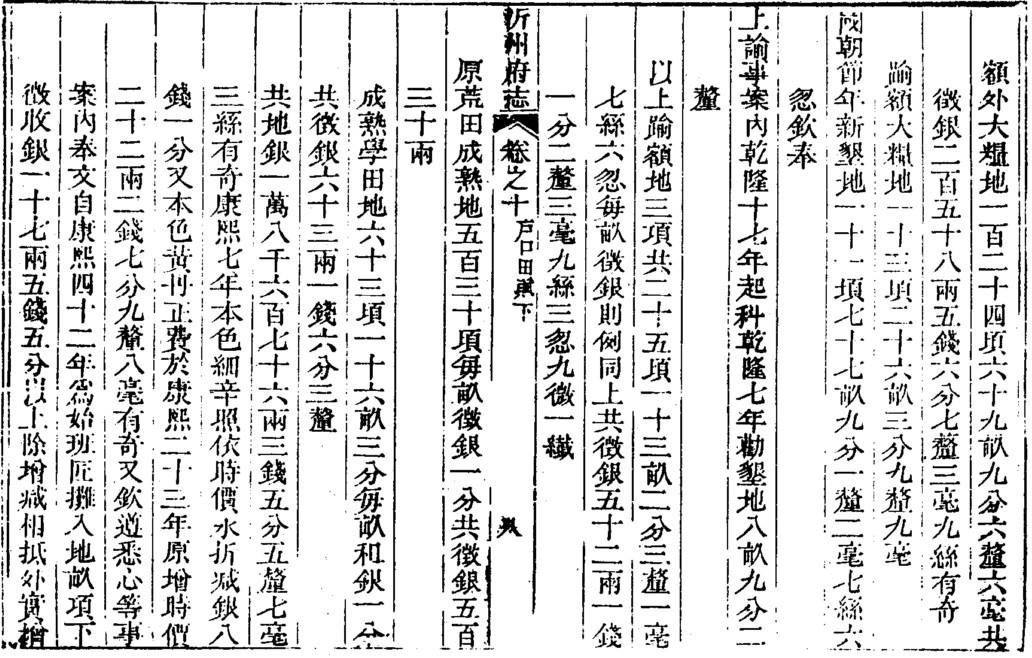 額外大糧地一百二十四項六十九畝九分六釐六毫共
徵銀二百五十八兩五錢六分七釐三毫九絲有奇
踰額大糧地一十三項二十六畝三分九釐九毫
國朝節年新墾地一十一項七十七畝九分一釐二毫七絲六
忽欽奉
上諭事案內乾隆十七年起科乾隆七年勸墾地八畝九分二
釐
以上踰額地三項共二十五項一十三畝二分三釐一毫
七絲六忽每畝徵銀則例同上共徵銀五十二兩一錢
一分二釐三毫九絲三忽九微一纖
沂州府志 卷之十 戶口田賦下
原荒田成熟地五百三十項每畝徵銀一分共徵銀五百
三十兩
成熟學田地六十三項一十六畝三分每畝和銀一分
共徵銀六十三兩一錢六分三釐
共地銀一萬八千六百七十六兩三錢五分五釐七毫
三絲有奇康熙七年本色細辛照依時價水折減銀八
錢一分又本色黃丹正費於康熙二十三年原增時價
二十二兩二錢七分九釐八毫有奇又欽遵悉心等事
案內奉文自康熙四十二年為始班匠攤入地畝項下
徵收銀一十七兩五錢五分以上除增減相抵外實增